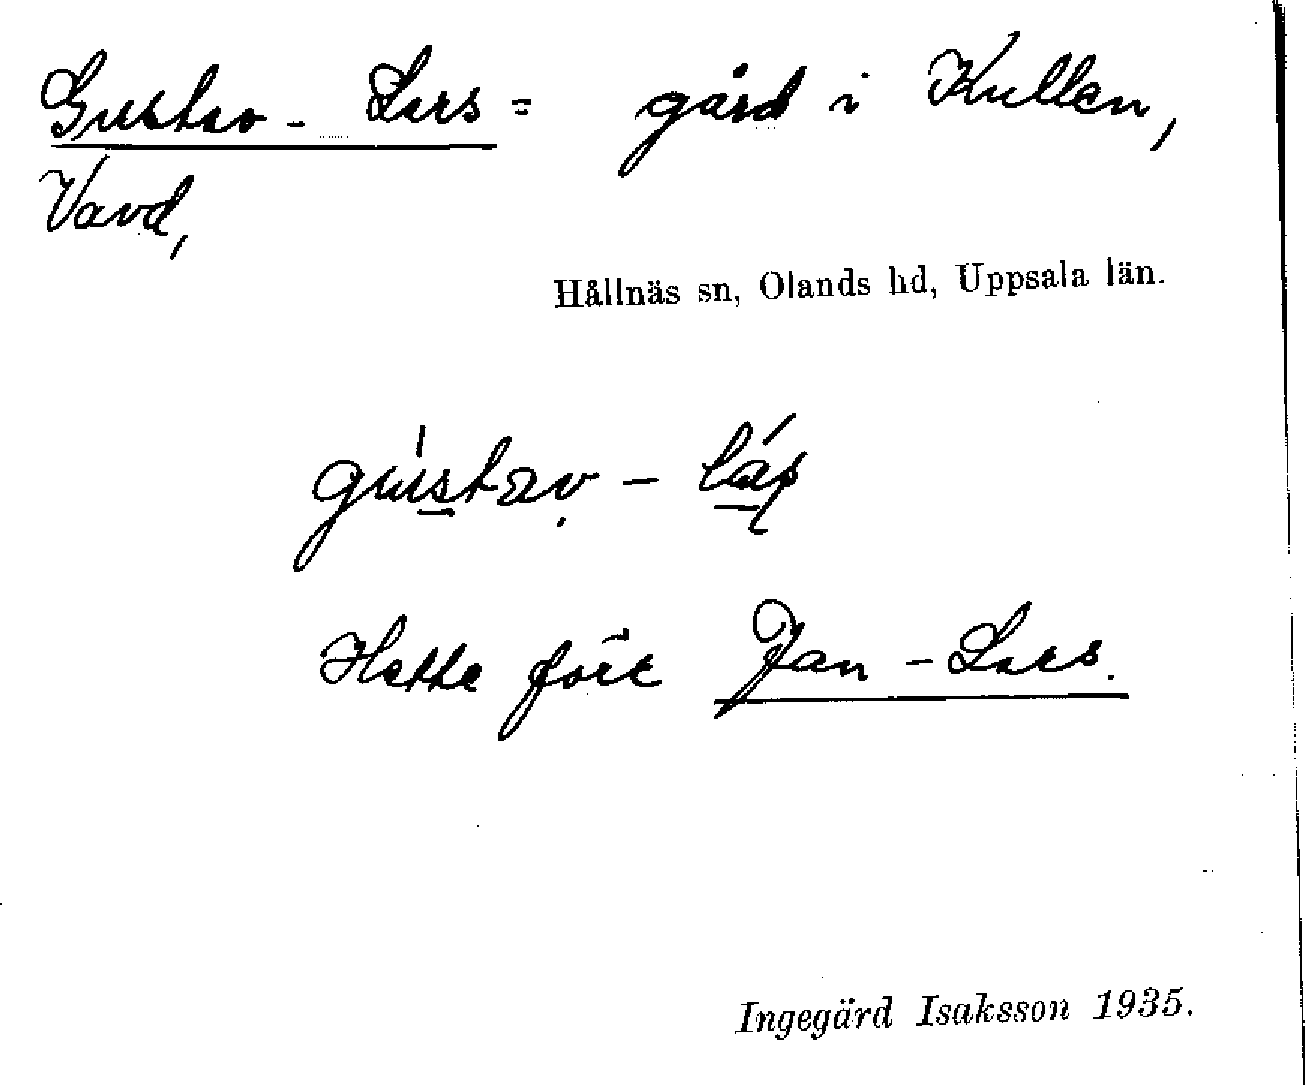 Gustav - Lars = gård i Kullen,
Vavd,
Hållnäs sn, Olands hd, Uppsala län.
gústav - láṣ
Hette förr Jan - Lars.
Ingegärd Isaksson 1935.